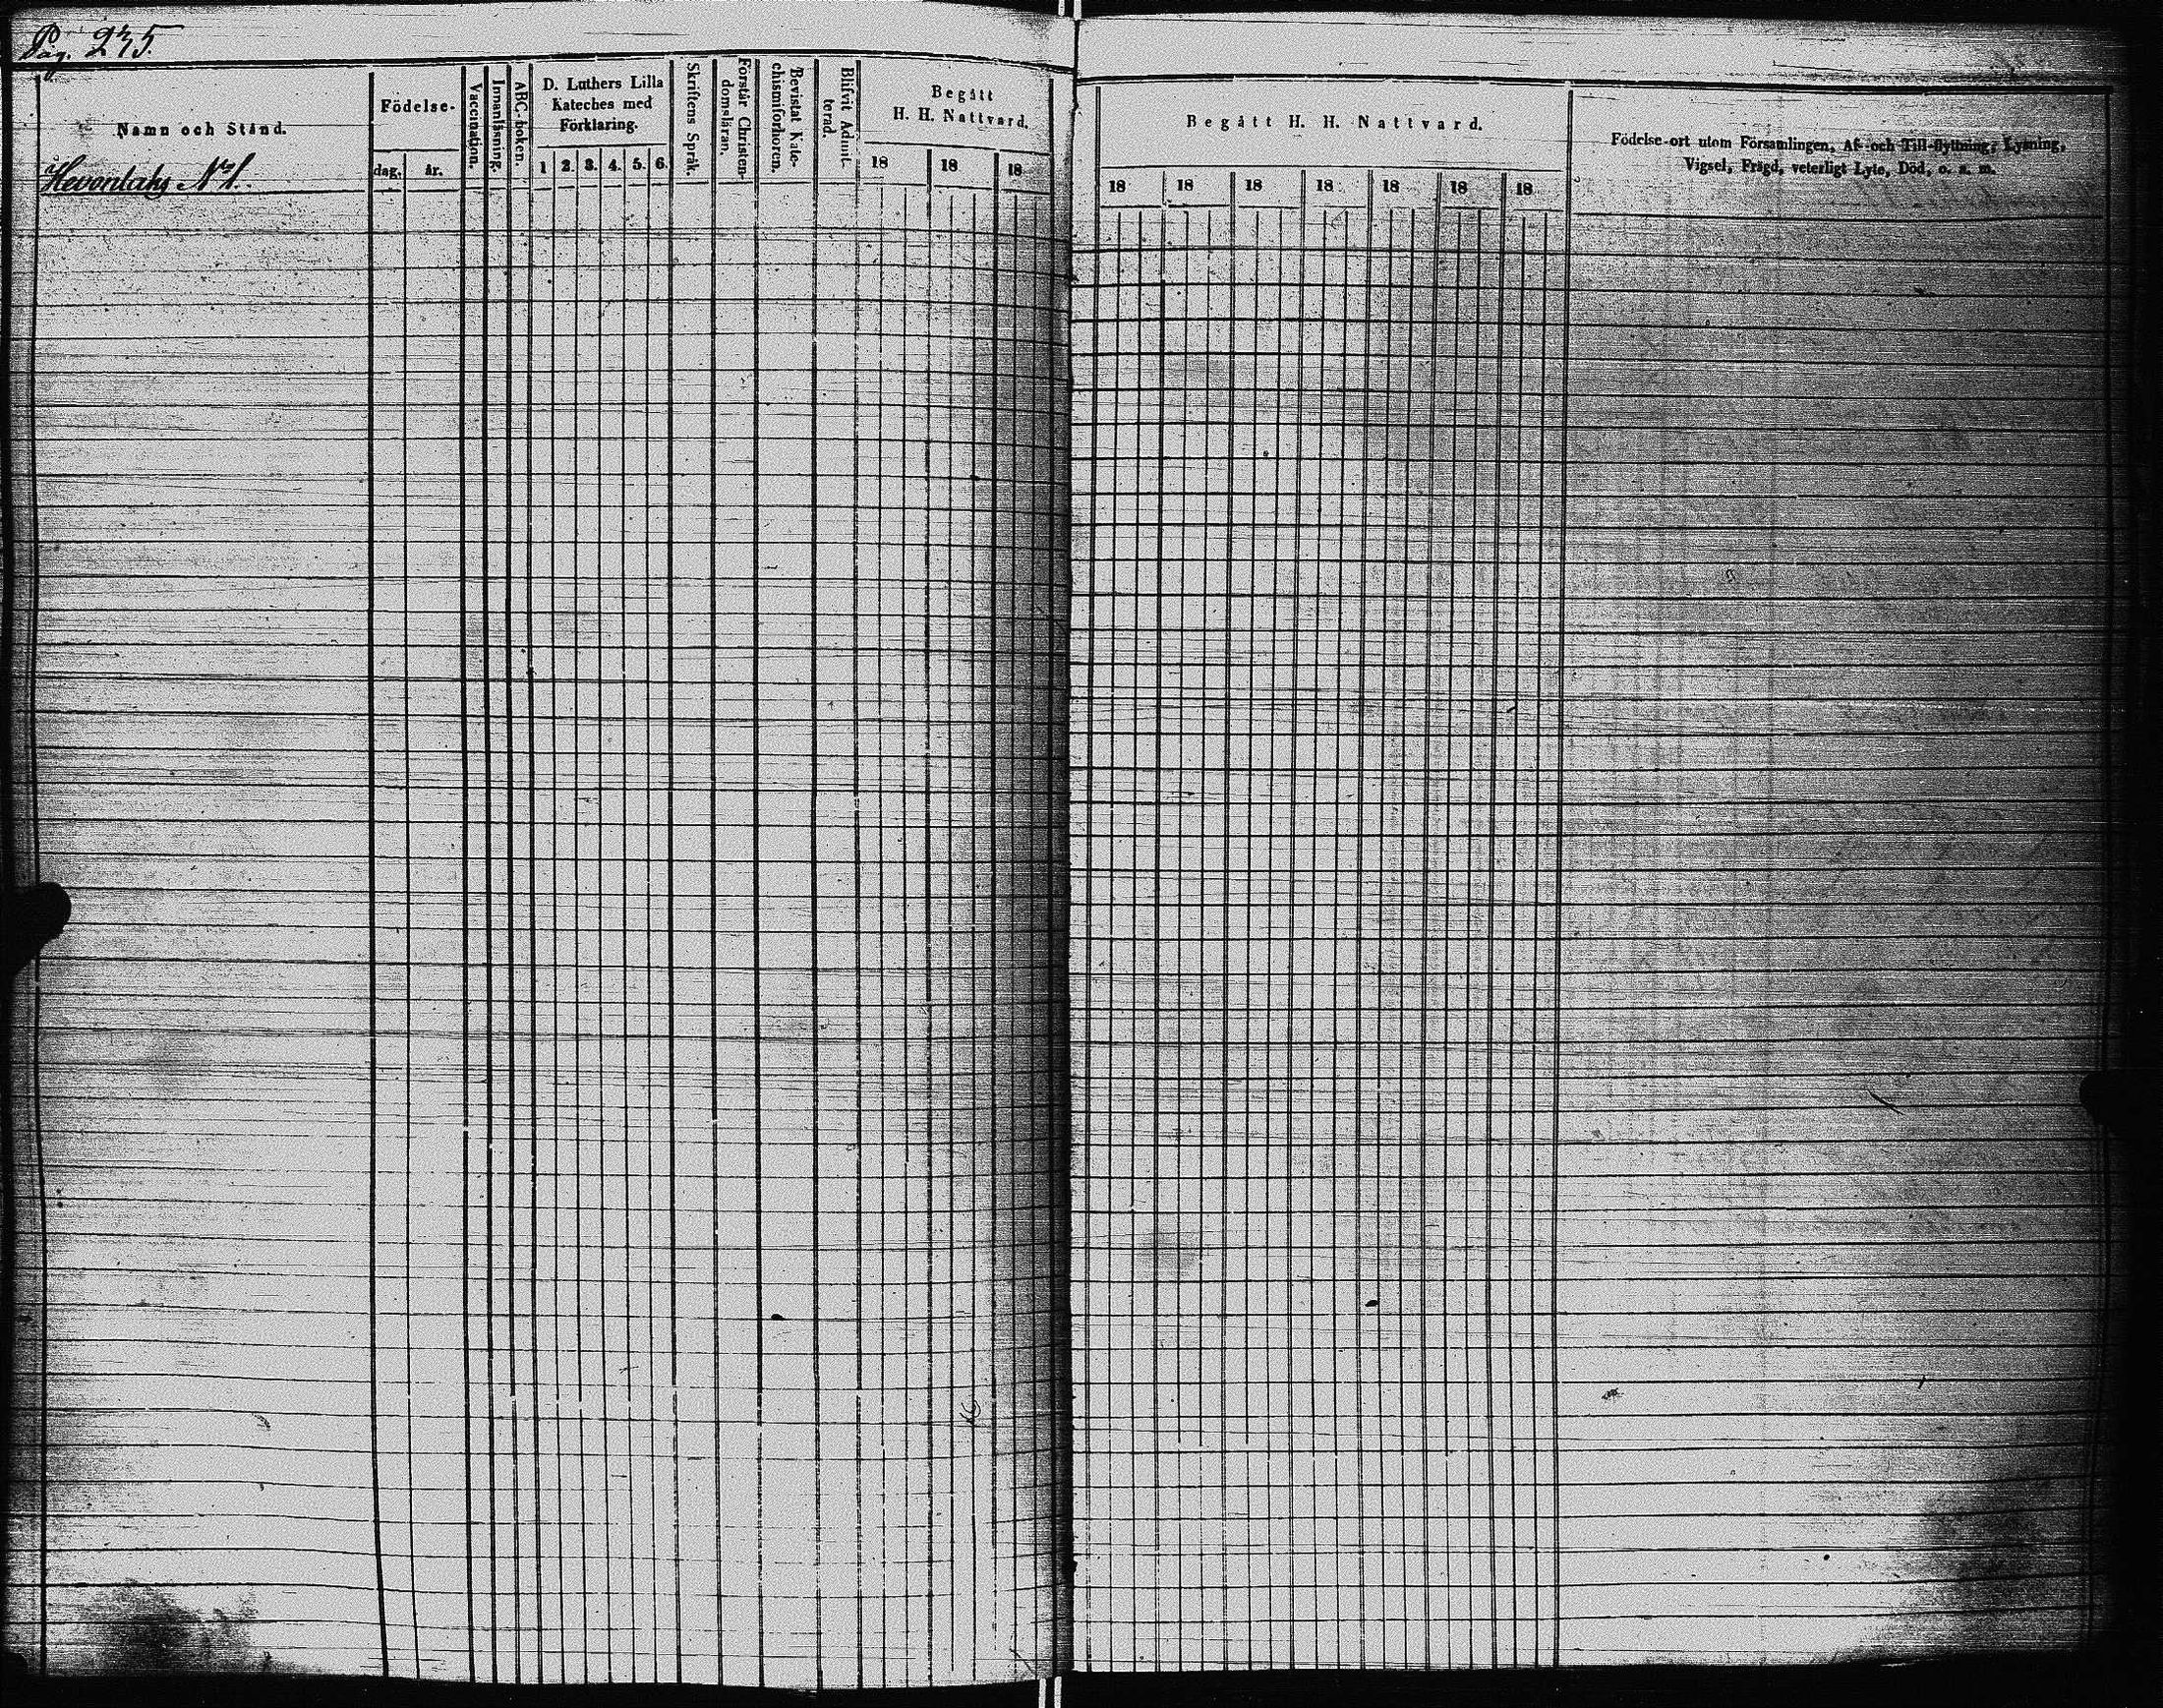 Pag. 235.
Namn och Stånd.
Hevonlaks No 1.
Födelse-
dag.
år.
Vaccination.
Innanläsning.
ABC-boken.
D. Luthers Lilla
Kateches med
Förklaring.
1 2. 3. 4. 5. 6.
Skriftens Språk.
Förstår Christen-
domsläran.
Bevistat Kate-
chismiförhören.
Blifvit Admit-
terad.
Begått
H. H. Nattvard.
18 18 18
Begått H. H. Nattvard.
18 18 18 18 18 18 18
Födelse-ort utom Församlingen, Af- och Till-flyttning, Lysning,
Vigsel, Frägd, veterligt Lyte, Död, o. s. m.